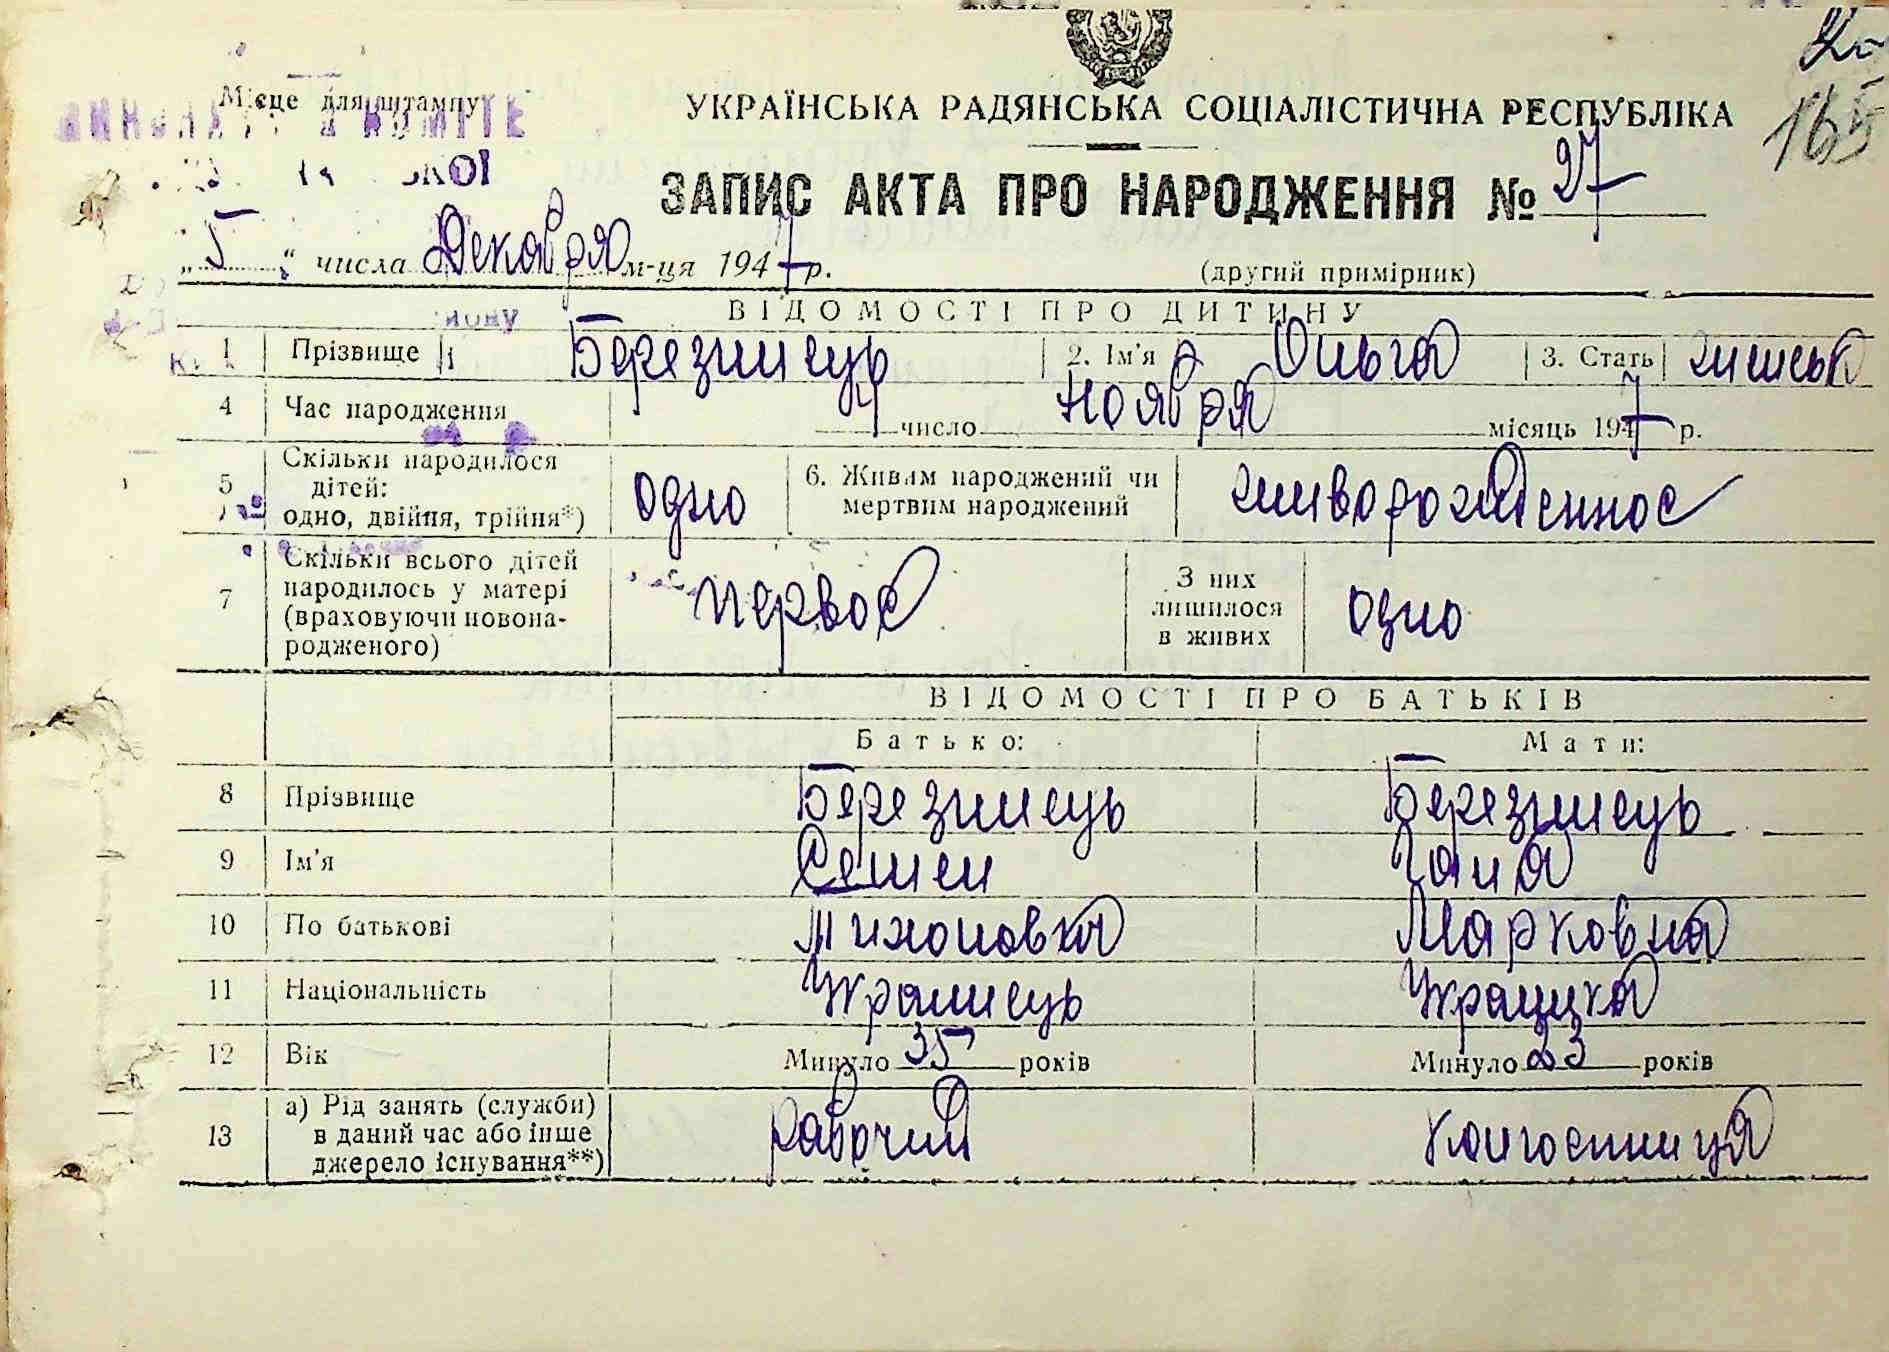 165
Місце для штампу
УКРАЇНСЬКА РАДЯНСЬКА СОЦІАЛІСТИЧНА РЕСПУБЛІКА
ЗАПИС АКТА ПРО НАРОДЖЕННЯ № 27
„ 5 “ числа Декабря м-ця 1947 р.
(другий примірник)
ВІДОМОСТІ ПРО ДИТИНУ
1 Прізвище Березинець 2. Ім'я Ольга 3. Стать
4 Час народження число Ноября місяць 1947 р.
5 Скільки народилося дітей: одно, двійня, трійня*) одно 6. Живим народжений чи мертвим народжений живорожденное
7 Скільки всього дітей народилось у матері (враховуючи новонародженого) первое З них лишилося в живих одно
ВІДОМОСТІ ПРО БАТЬКІВ
Батько: Мати:
8 Прізвище Березинець Березинець
9 Ім'я Семен Гана
10 По батькові Тихонович Марковна
11 Національність Украинець Украинка
12 Вік Минуло 35 років Минуло 23 років
13 а) Рід занять (служби) в даний час або інше джерело існування**) рабочий колгоспниця